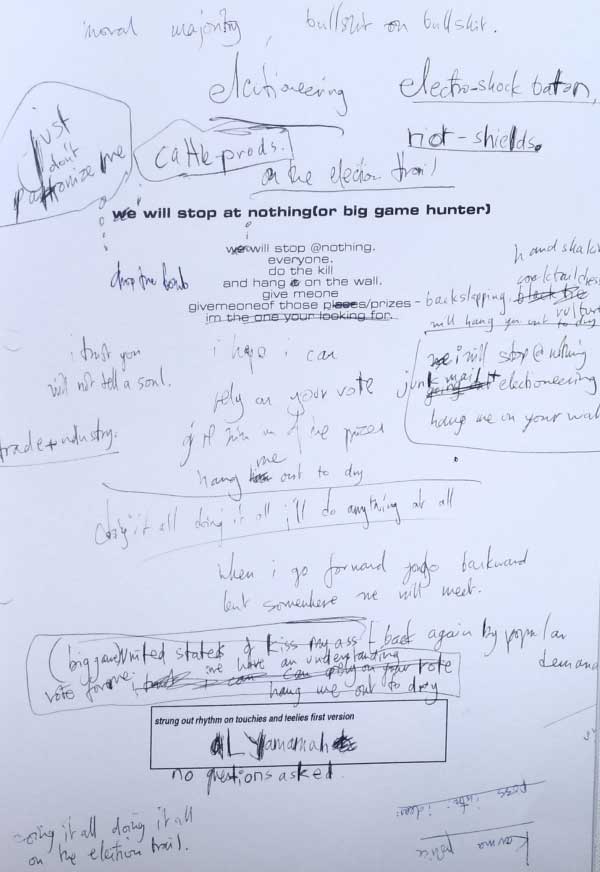 moral majority, bullshit on bullshit.
electioneering
electro-shock baton,
riot-shields.
just don't patronize me
cattle prods.
on the election trail
we will stop at nothing(or big game hunter)
we will stop @nothing.
everyone.
do the kill
and hang it on the wall.
give meone
givemeoneof those pieces/prizes - backslapping black tie
im the one your looking for.
drop the bomb
will hang you out to dry
i trust you
will not tell a soul.
i hope i can
rely on your vote
give him one of the prizes
hang him me out to dry
we i will stop @ nothing
junk mail
going out electioneering
hang me on your wall
trade+industry.
doing it all doing it all i'll do anything at all
when i go forward you go backward
but somewhere we will meet.
(big game) United states of kiss my ass - back again by popular demand
we have an understanding
vote for me. i can rely on your vote
hang me out to dry
strung out rhythm on touchies and feelies first version
AL Yamamah
no questions asked.
doing it all doing it all
on the election trail.
Karma police